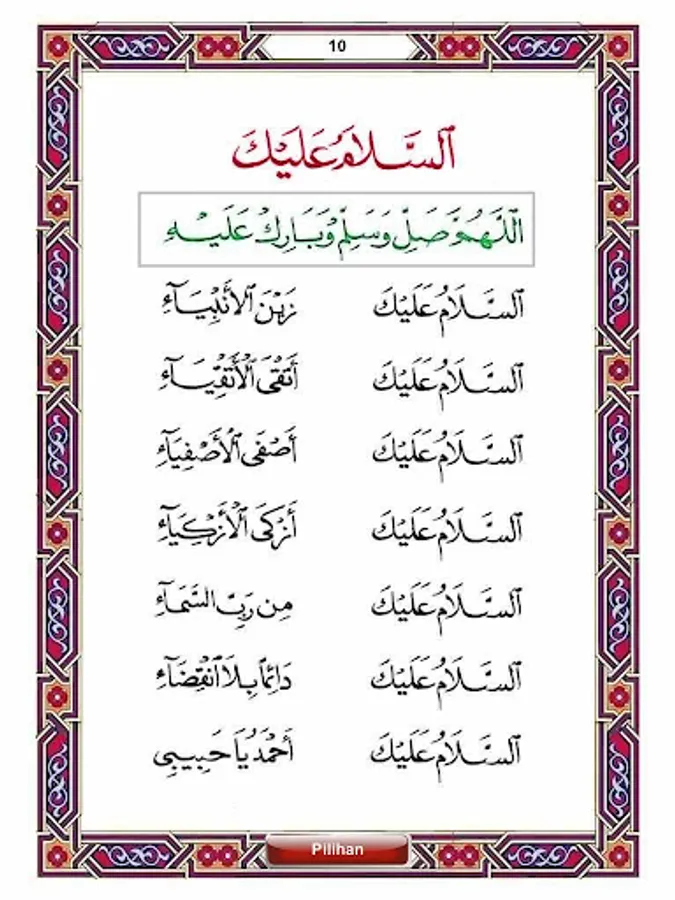 10
اَلسَّلَامُ عَلَيْكَ
اَللّٰهُمَّ صَلِّ وَسَلِّمْ وَبَارِكْ عَلَيْهِ
اَلسَّلَامُ عَلَيْكَ زَيْنَ الْأَنْبِيَآءِ
اَلسَّلَامُ عَلَيْكَ أَتْقَى الْأَتْقِيَآءِ
اَلسَّلَامُ عَلَيْكَ أَصْفَى الْأَصْفِيَآءِ
اَلسَّلَامُ عَلَيْكَ أَزْكَى الْأَزْكِيَآءِ
اَلسَّلَامُ عَلَيْكَ مِن رَبِّ السَّمَآءِ
اَلسَّلَامُ عَلَيْكَ دَائِمًا بِلَا انْقِضَآءِ
اَلسَّلَامُ عَلَيْكَ أَحْمَدُ يَا حَبِيبِي
Pilihan